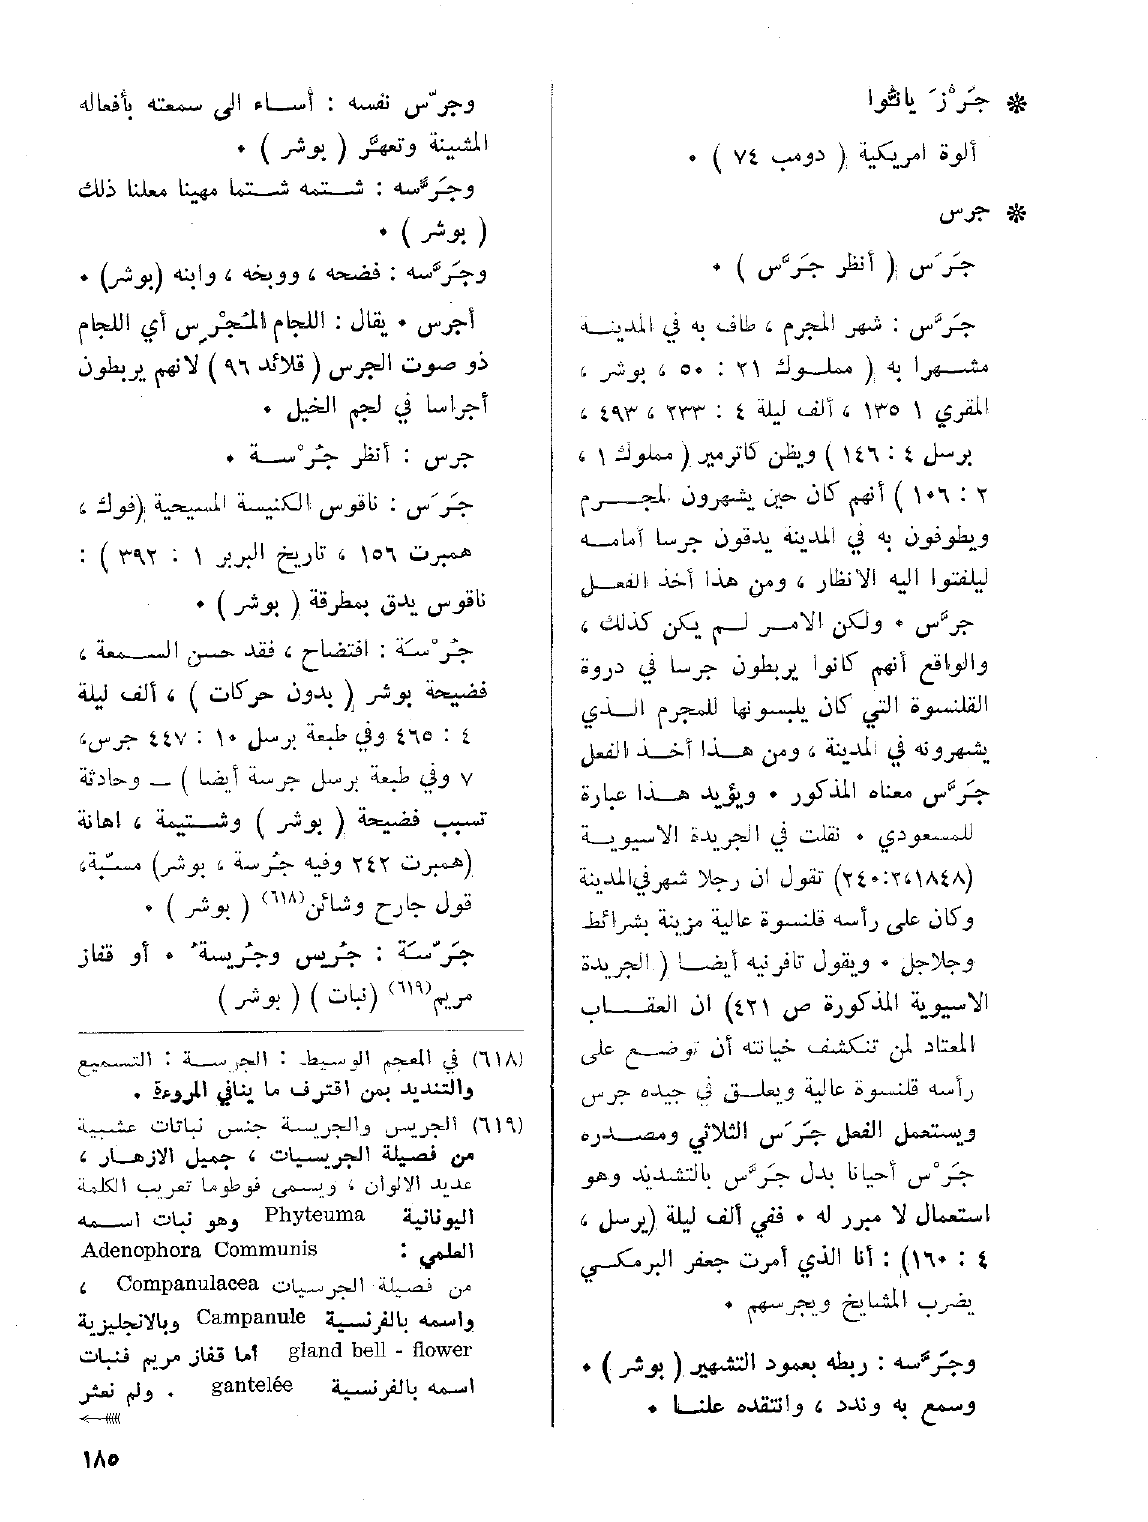 ❋ جَرْزَ يانثوا
ألوة امريكية ( دومب ٧٤ ) ٠
❋ جرس
جَرَس ( أنظر جَرَّس ) ٠
جَرَّس : شهر المجرم ، طاف به في المدينة
مشهرا به ( مملوك ٢١ : ٥٠ ، بوشر ،
المقري ١ ١٣٥ ، ألف ليلة ٤ : ٢٣٣ ، ٤٩٣ ،
برسل ٤ : ١٤٦ ) ويظن كاترمير ( مملوك ١ ،
٢ : ١٠٦ ) أنهم كان حين يشهرون المجرم
ويطوفون به في المدينة يدقون جرسا أمامه
ليلفتوا اليه الانظار ، ومن هذا أخذ الفعل
جرَّس ٠ ولكن الامر لم يكن كذلك ،
والواقع أنهم كانوا يربطون جرسا في دروة
القلنسوة التي كان يلبسونها للمجرم الذي
يشهرونه في المدينة ، ومن هذا أخذ الفعل
جَرَّس معناه المذكور ٠ ويؤيد هذا عبارة
للمسعودي ٠ نقلت في الجريدة الاسيوية
(١٨٤٨ ،٢٤٠:٢) تقول ان رجلا شهر في المدينة
وكان على رأسه قلنسوة عالية مزينة بشرائط
وجلاجل ٠ ويقول تافرنيه أيضا ( الجريدة
الاسيوية المذكورة ص ٤٢١) ان العقاب
المعتاد لمن تنكشف خيانته أن توضع على
رأسه قلنسوة عالية ويعلق في جيده جرس
ويستعمل الفعل جَرَس الثلاثي ومصدره
جَرْس أحيانا بدل جَرَّس بالتشديد وهو
استعمال لا مبرر له ٠ ففي ألف ليلة (برسل ،
٤ : ١٦٠) : أنا الذي أمرت جعفر البرمكي
يضرب المشايخ ويجرسهم ٠
وجَرَّسه : ربطه بعمود التشهير ( بوشر ) ٠
وسمع به وندد ، وانتقده علنا ٠
وجرّس نفسه : أساء الى سمعته بأفعاله
المشينة وتعهَّر ( بوشر ) ٠
وجَرَّسه : شتمه شتما مهينا معلنا ذلك
( بوشر ) ٠
وجَرَّسه : فضحه ، ووبخه ، وابنه (بوشر) ٠
أجرس ٠ يقال : اللجام المُجْرِس أي اللجام
ذو صوت الجرس ( قلائد ٩٦ ) لانهم يربطون
أجراسا في لجم الخيل ٠
جرس : أنظر جُرْسة ٠
جَرَس : ناقوس الكنيسة المسيحية (فوك ،
همبرت ١٥٦ ، تاريخ البربر ١ : ٣٩٢ ) :
ناقوس يدق بمطرقة ( بوشر ) ٠
جُرْسَة : افتضاح ، فقد حسن السمعة ،
فضيحة بوشر ( بدون حركات ) ، ألف ليلة
٤ : ٤٦٥ وفي طبعة برسل ١٠ : ٤٤٧ جرس،
٧ وفي طبعة برسل جرسة أيضا ) ــ وحادثة
تسبب فضيحة ( بوشر ) وشتيمة ، اهانة
(همبرت ٢٤٢ وفيه جُرسة ، بوشر) مسبّة،
قول جارح وشائن(٦١٨) ( بوشر ) ٠
جَرَسَة : جُرَيس وجُرَيسة ٠ أو قفاز
مريم(٦١٩) (نبات ) ( بوشر )
(٦١٨) في المعجم الوسيط : الجرسة : التسميع
والتنديد بمن اقترف ما ينافي المروءة ٠
(٦١٩) الجريس والجريسة جنس نباتات عشبية
من فصيلة الجريسيات ، جميل الازهار ،
عديد الالوان ، ويسمى فوطوما تعريب الكلمة
اليونانية Phyteuma وهو نبات اسمه
العلمي : Adenophora Communis
من فصيلة الجرسيات Companulacea ،
واسمه بالفرنسية Campanule وبالانجليزية
gland bell - flower أما قفاز مريم فنبات
اسمه بالفرنسية gantelée . ولم نعثر
١٨٥